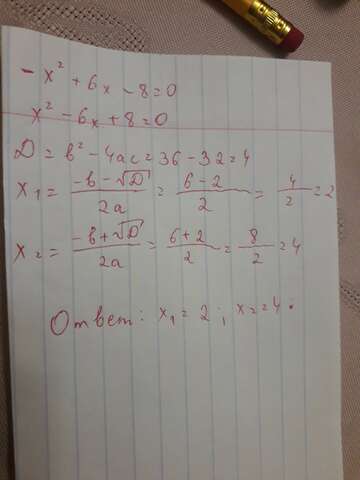 -x² + 6x - 8 = 0
x² - 6x + 8 = 0
D = b² - 4ac = 36 - 32 = 4
x₁ = (-b - √D)/2a = (6 - 2)/2 = 4/2 = 2
x₂ = (-b + √D)/2a = (6 + 2)/2 = 8/2 = 4
Ответ: x₁ = 2 ; x₂ = 4.